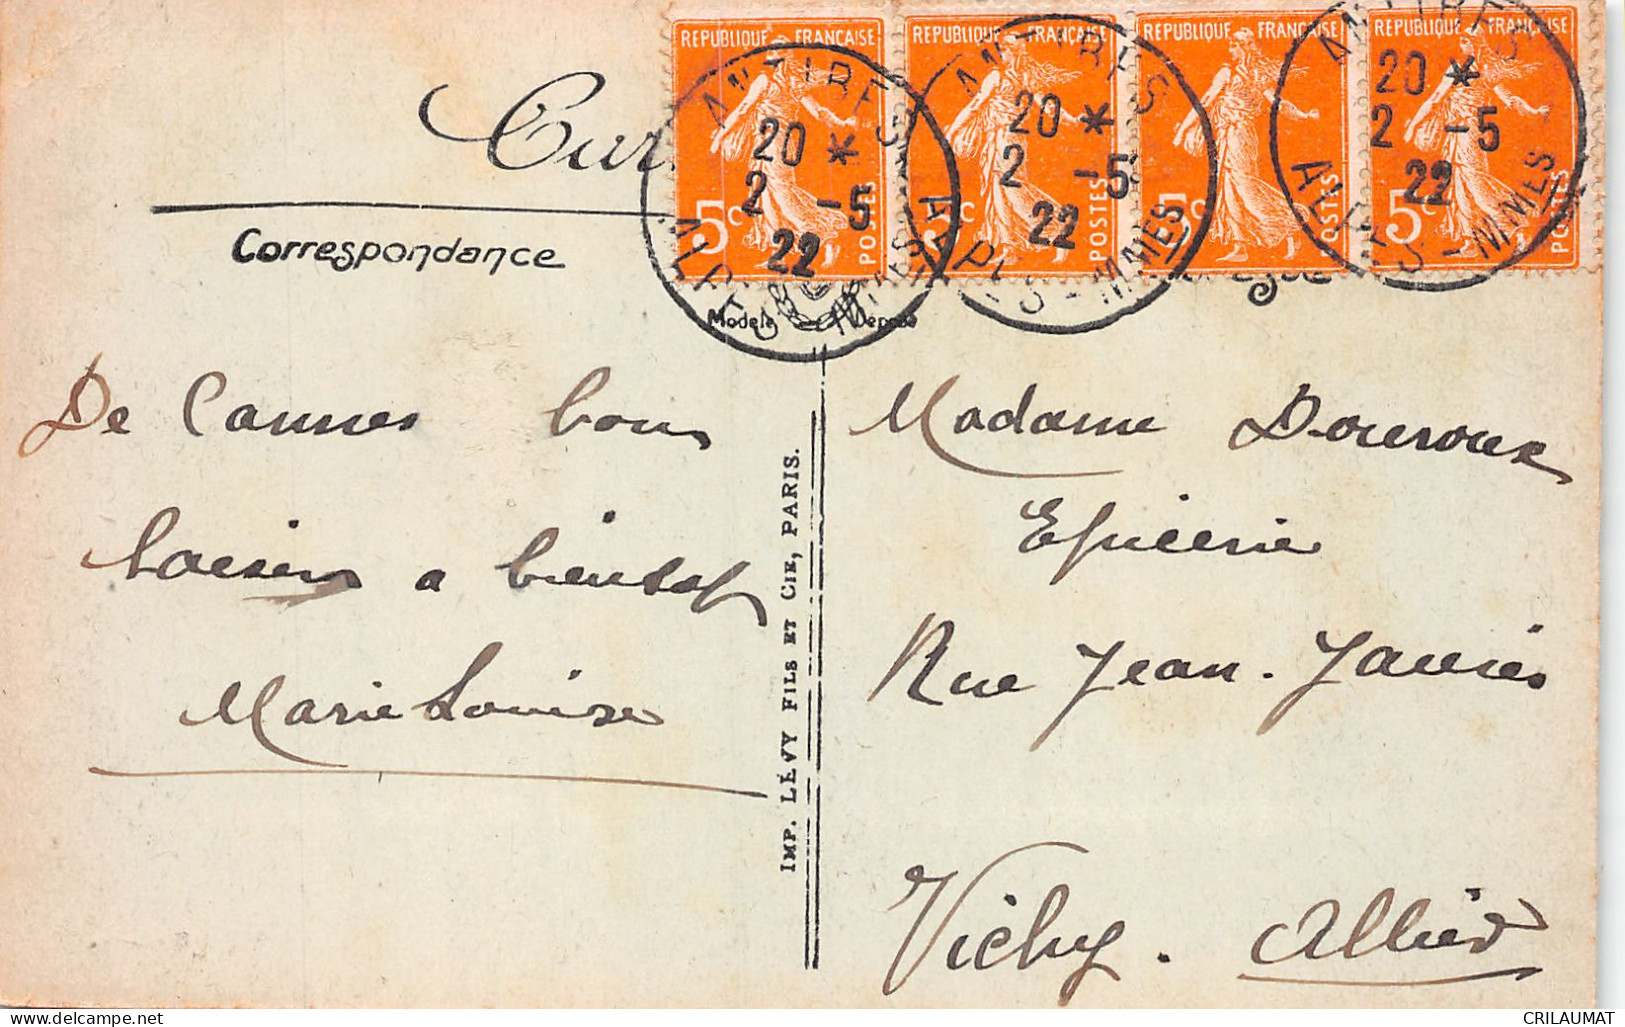 REPUBLIQUE FRANÇAISE REPUBLIQUE FRANÇAISE REPUBLIQUE FRANÇAISE REPUBLIQUE FRANÇAISE
ANTIBES ANTIBES ANTIBES
20 * 20 * 20 *
2 -5 2 -5 2 -5
22 22 22
ALPES-MMES ALPES-MMES ALPES-MMES
5c POSTES 5c POSTES 5c POSTES 5c POSTES
Correspondance
Modèle Déposé
De Cannes bons
baisers a bientot
Marie Louise
IMP. LÉVY FILS ET CIE, PARIS.
Madame Douroux
Epicerie
Rue Jean. Jaurès
Vichy. Allier
CRILAUMAT